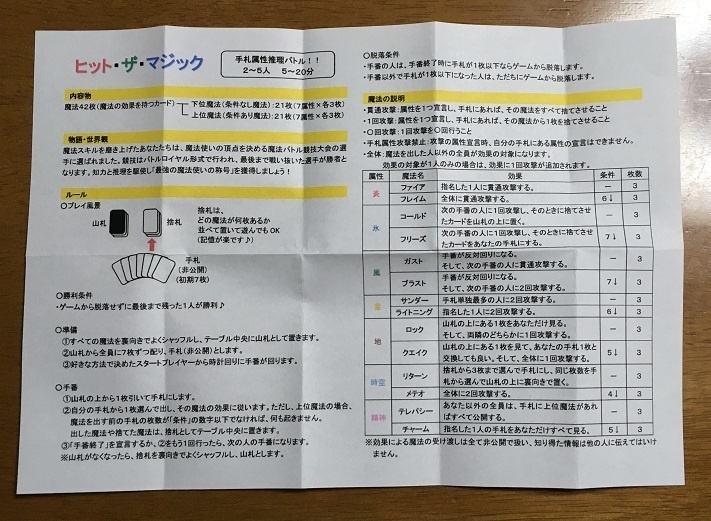 ヒット・ザ・マジック
手札属性推理バトル！！
2～5人　5～20分
内容物
魔法42枚(魔法の効果を持つカード)
下位魔法(条件なし魔法):21枚(7属性×各3枚)
上位魔法(条件あり魔法):21枚(7属性×各3枚)
物語・世界観
魔法スキルを磨き上げたあなたたちは、魔法使いの頂点を決める魔法バトル競技大会の選
手に選ばれました。競技はバトルロイヤル形式で行われ、最後まで戦い抜いた選手が勝者と
なります。知力と推理を駆使し「最強の魔法使いの称号」を獲得しましょう！
ルール
○プレイ風景
山札
捨札
捨札は、
どの魔法が何枚あるか
並べて置いて遊んでもOK
(記憶が楽です♪)
手札
(非公開)
(初期7枚)
○勝利条件
・ゲームから脱落せずに最後まで残った1人が勝利♪
○準備
①すべての魔法を裏向きでよくシャッフルし、テーブル中央に山札として置きます。
②山札から全員に7枚ずつ配り、手札(非公開)とします。
③好きな方法で決めたスタートプレイヤーから時計回りに手番が回ります。
○手番
①山札の上から1枚引いて手札にします。
②自分の手札から1枚選んで出し、その魔法の効果に従います。ただし、上位魔法の場合、
魔法を出す前の手札の枚数が「条件」の数字以下でなければ、何も起きません。
出した魔法や捨てた魔法は、捨札としてテーブル中央に置きます。
③「手番終了」を宣言するか、②をもう1回行ったら、次の人の手番になります。
※山札がなくなったら、捨札を裏向きでよくシャッフルし、山札とします。
○脱落条件
・手番の人は、手番終了時に手札が1枚以下ならゲームから脱落します。
・手番以外で手札が1枚以下になった人は、ただちにゲームから脱落します。
魔法の説明
・貫通攻撃:属性を1つ宣言し、手札にあれば、その魔法をすべて捨てさせること
・1回攻撃:属性を1つ宣言し、手札にあれば、その魔法から1枚を捨てさせること
・○回攻撃:1回攻撃を○回行うこと
・手札属性攻撃禁止:攻撃の属性宣言時、自分の手札にある属性の宣言はできません。
・全体:魔法を出した人以外の全員が効果の対象になります。
効果の対象が1人のみの場合は、効果に1回攻撃が追加されます。
属性　魔法名　効果　条件　枚数
炎　ファイア　指名した1人に貫通攻撃する。　－　3
フレイム　全体に貫通攻撃する。　6↓　3
氷　コールド　次の手番の人に1回攻撃し、そのときに捨てさせ
たカードを山札の上に置く。　－　3
フリーズ　次の手番の人に1回攻撃し、そのときに捨てさせ
たカードをあなたの手札にする。　7↓　3
風　ガスト　手番が反対回りになる。
そして、次の手番の人に貫通攻撃する。　－　3
ブラスト　手番が反対回りになる。
そして、次の手番の人に2回攻撃する。　7↓　3
雷　サンダー　手札単独最多の人に2回攻撃する。　－　3
ライトニング　指名した1人に2回攻撃する。　6↓　3
地　ロック　山札の上にある1枚をあなただけ見る。
そして、両隣のどちらかに1回攻撃する。　－　3
クエイク　山札の上にある1枚を見て、あなたの手札1枚と
交換しても良い。そして、全体に1回攻撃する。　5↓　3
時空　リターン　捨札から3枚まで選んで手札にし、同じ枚数を手
札から選んで山札の上に裏向きで置く。　－　3
メテオ　全体に2回攻撃する。　4↓　3
精神　テレパシー　あなた以外の全員は、手札に上位魔法があれ
ばすべて公開する。　－　3
チャーム　指名した1人の手札をあなただけすべて見る。　5↓　3
※効果による魔法の受け渡しは全て非公開で扱い、知り得た情報は他の人に伝えてはいけ
ません。